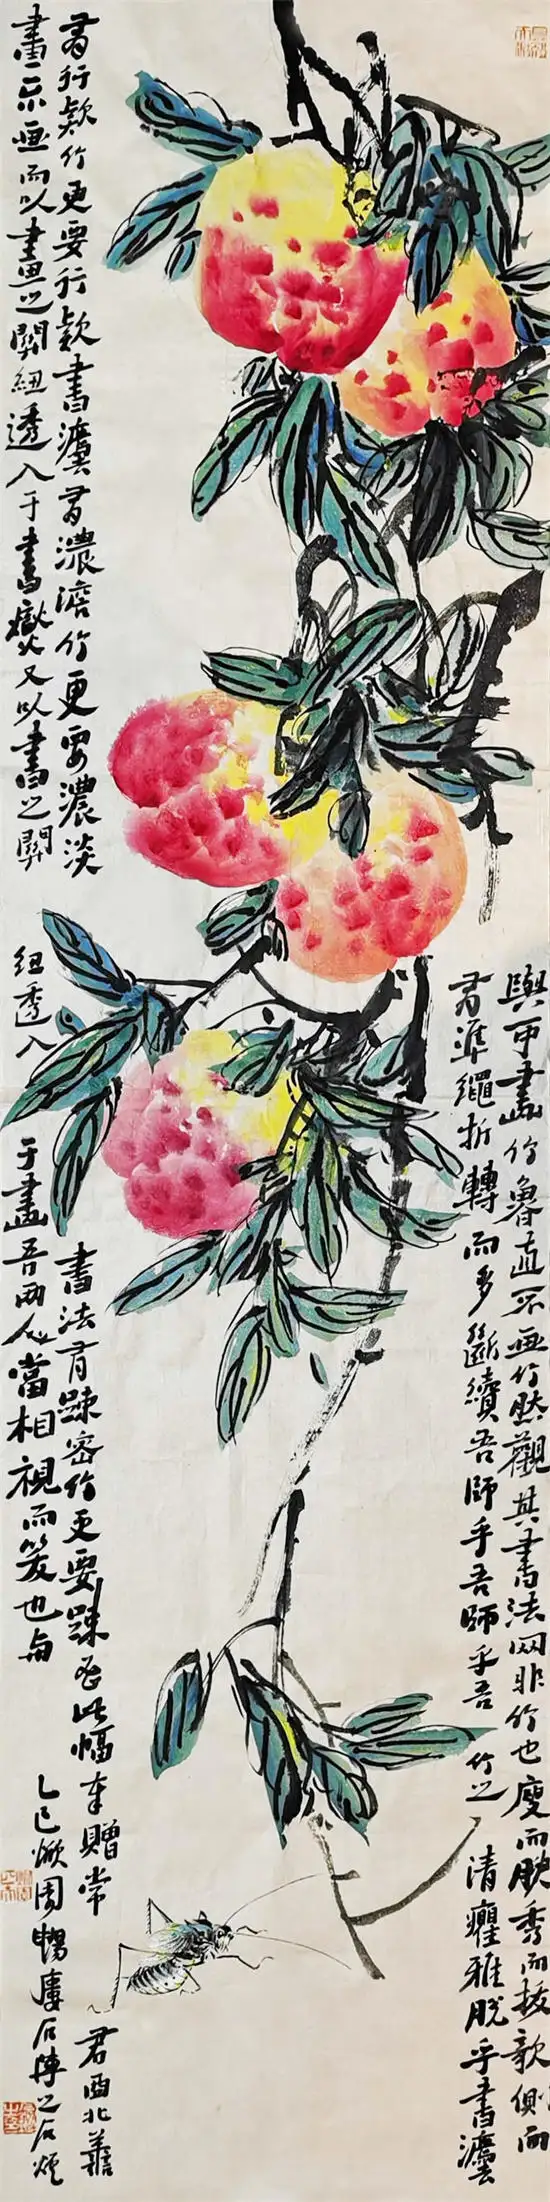 與可畫竹魯直不畫竹然觀其書法罔非竹也瘦而腴秀而拔欹側而
有準繩折轉而多斷續吾師乎吾師乎吾竹之清癯雅脫乎書灋
有行款竹更要行款書灋有濃淡竹更要濃淡
書法有疎密竹更要疎密此幅奉贈常君酉北善
畫不畫而以畫之關紐透入于書燮又以書之關紐透入于畫吾兩人當相視而笑也與
乙巳